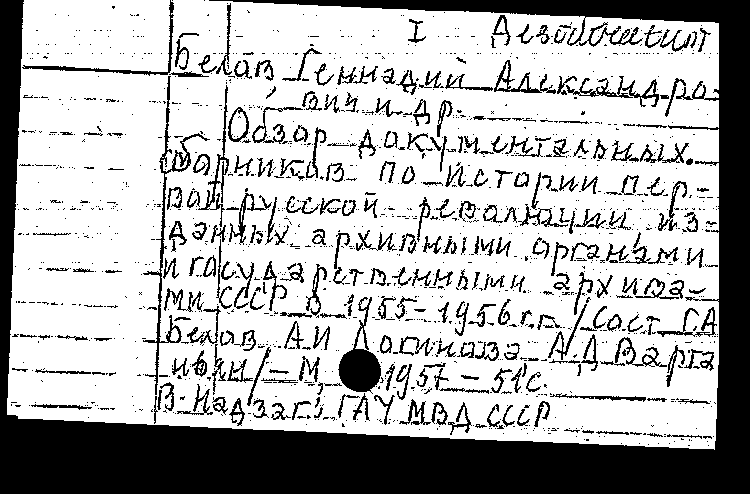 I Дезидентит
Белов Геннадий Александро-
вич и др.
Обзор документальных
сборников по истории пер-
вой русской революции из-
данных архивными органами
и государственными архива-
ми СССР в 1955-1956 г.г. / Сост. Г.А
Белов А.И Логинова А.Д Варта
ньян/ – М, 1957 – 51 с.
В надзаг: ГАУ МВД СССР